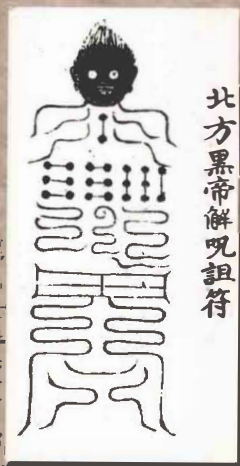 北方黑帝解咒詛符